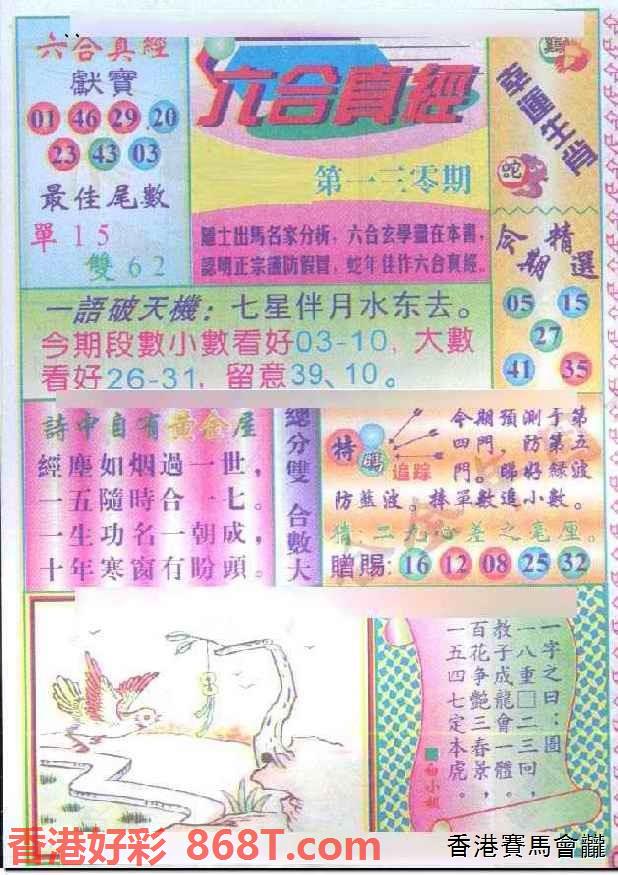 六合真經
獻寶
01 46 29 20
23 43 03
最佳尾數
單15
雙62
六合真經
第一三零期
隱士出馬名家分析，六合玄學盡在本書，
認明正宗謹防假冒，蛇年佳作六合真經。
雞
幸運生肖
蛇
今期精選
05 15
27
41 35
一語破天機：七星伴月水东去。
今期段數小數看好03-10，大數
看好26-31，留意39、10。
詩中自有黃金屋
經塵如烟過一世，
一五隨時合一七。
一生功名一朝成，
十年寒窗有盼頭。
總分雙 合數大
特
碼
追踪
今期預測于第
四門，防第五
門。睇好綠波
防藍波。捧單數追小數。
猜：二九心差之毫厘。
贈賜：16 12 08 25 32
一字之曰：圓
一八重□二三回，
教子成龍會一體。
百花争艷三春景，
一五四七定本虎。
白小姐
香港好彩 868T.com
香港賽馬會